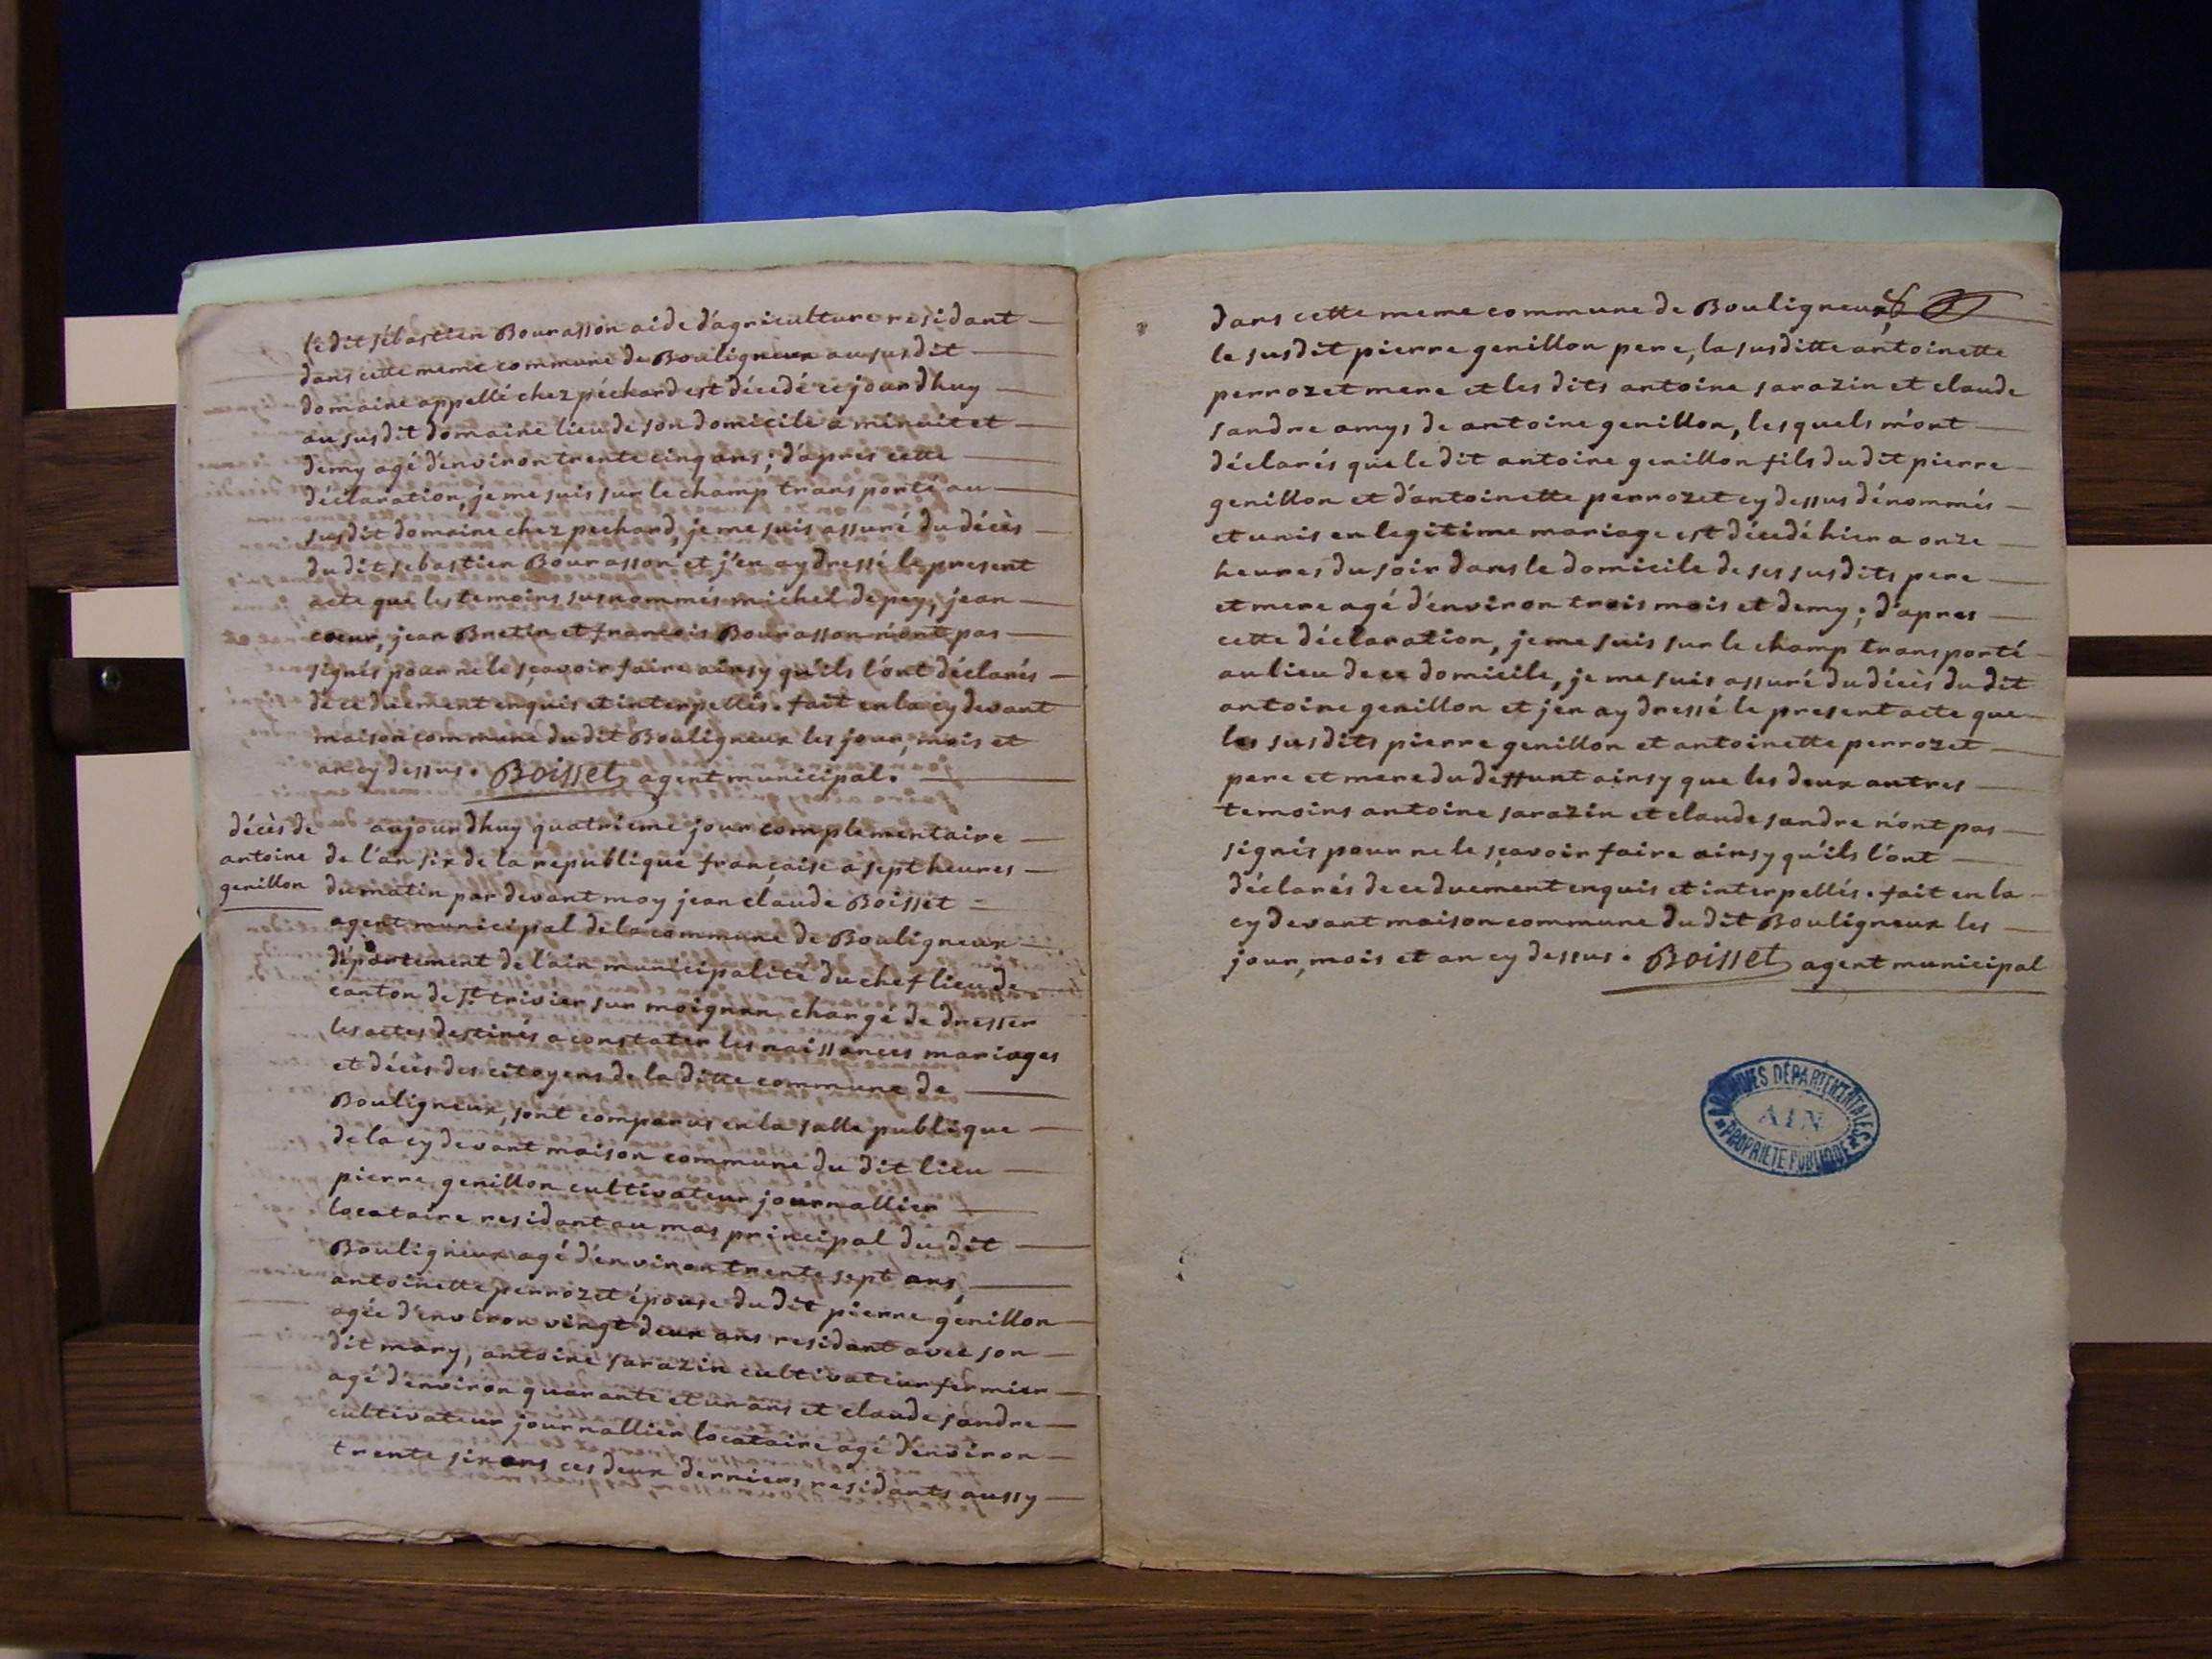 ledit sébastien Bourasson aide d'agriculture residant
dans cette meme commune de Bouligneux au susdit
domaine appellé chez péchard est décedé ce jourdhuy
au susdit domaine lieu de son domicile a minuit et
demy agé d'environ trente cinq ans; d'après cette
déclaration, je me suis sur le champ transporté au
susdit domaine chez pechard, je me suis assuré du décès
du dit sebastien Bourasson et j'en ay dressé le present
acte que les temoins susnommés michel depey, jean
coeur, jean Bretin et francois Bourasson n'ont pas
signés pour ne le sçavoir faire ainsy qu'ils l'ont déclarés
de ce duement enquis et interpellés. fait en la cy devant
maison commune du dit Bouligneux les jour, mois et
an cy dessus. Boisset agent municipal.
décès de
antoine
genillon
aujourdhuy quatrieme jour complementaire
de l'an six de la republique française a sept heures
du matin par devant moy jean claude Boisset
agent municipal de la commune de Bouligneux
département de l'ain municipalité du chef lieu de
canton de st trivier sur moignan chargé de dresser
les actes destinés a constater les naissances mariages
et décès des citoyens de la ditte commune de
Bouligneux, sont comparus en la salle publique
de la cy devant maison commune du dit lieu
pierre genillon cultivateur journallier
locataire residant au mas principal du dit
Bouligneux agé d'environ trente sept ans,
antoinette perrozet épouse du dit pierre genillon
agée d'environ vingt deux ans residant avec son
dit mary, antoine sarazin cultivateur fermier
agé d'environ quarante et un ans et claude sandre
cultivateur journallier locataire agé d'environ
trente six ans ces deux derniers residants aussy
dans cette meme commune de Bouligneux,
le susdit pierre genillon pere, la susditte antoinette
perrozet mere et les dits antoine sarazin et claude
sandre amys de antoine genillon, lesquels m'ont
déclarés que le dit antoine genillon fils du dit pierre
genillon et d'antoinette perrozet cy dessus dénommés
et unis en legitime mariage est décedé hier a onze
heures du soir dans le domicile de ses susdits pere
et mere agé d'environ trois mois et demy; d'apres
cette déclaration, je me suis sur le champ transporté
au lieu de ce domicile, je me suis assuré du décès du dit
antoine genillon et j'en ay dressé le present acte que
les susdits pierre genillon et antoinette perrozet
pere et mere du deffunt ainsy que les deux autres
temoins antoine sarazin et claude sandre n'ont pas
signés pour ne le sçavoir faire ainsy qu'ils l'ont
déclarés de ce duement enquis et interpellés. fait en la
cy devant maison commune du dit Bouligneux les
jour, mois et an cy dessus. Boisset agent municipal
ARCHIVES DÉPARTEMENTALES
AIN
PROPRIÉTÉ PUBLIQUE